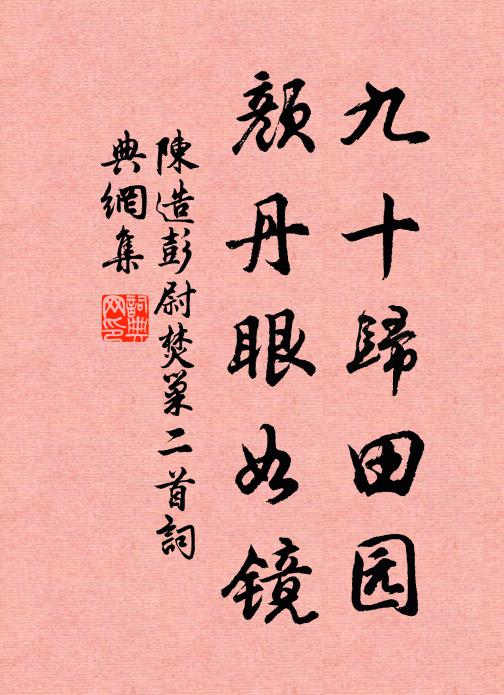 九十歸田园
颜丹眼如镜
陳造彭尉焚巢二首詞
典網集
詞典
网印